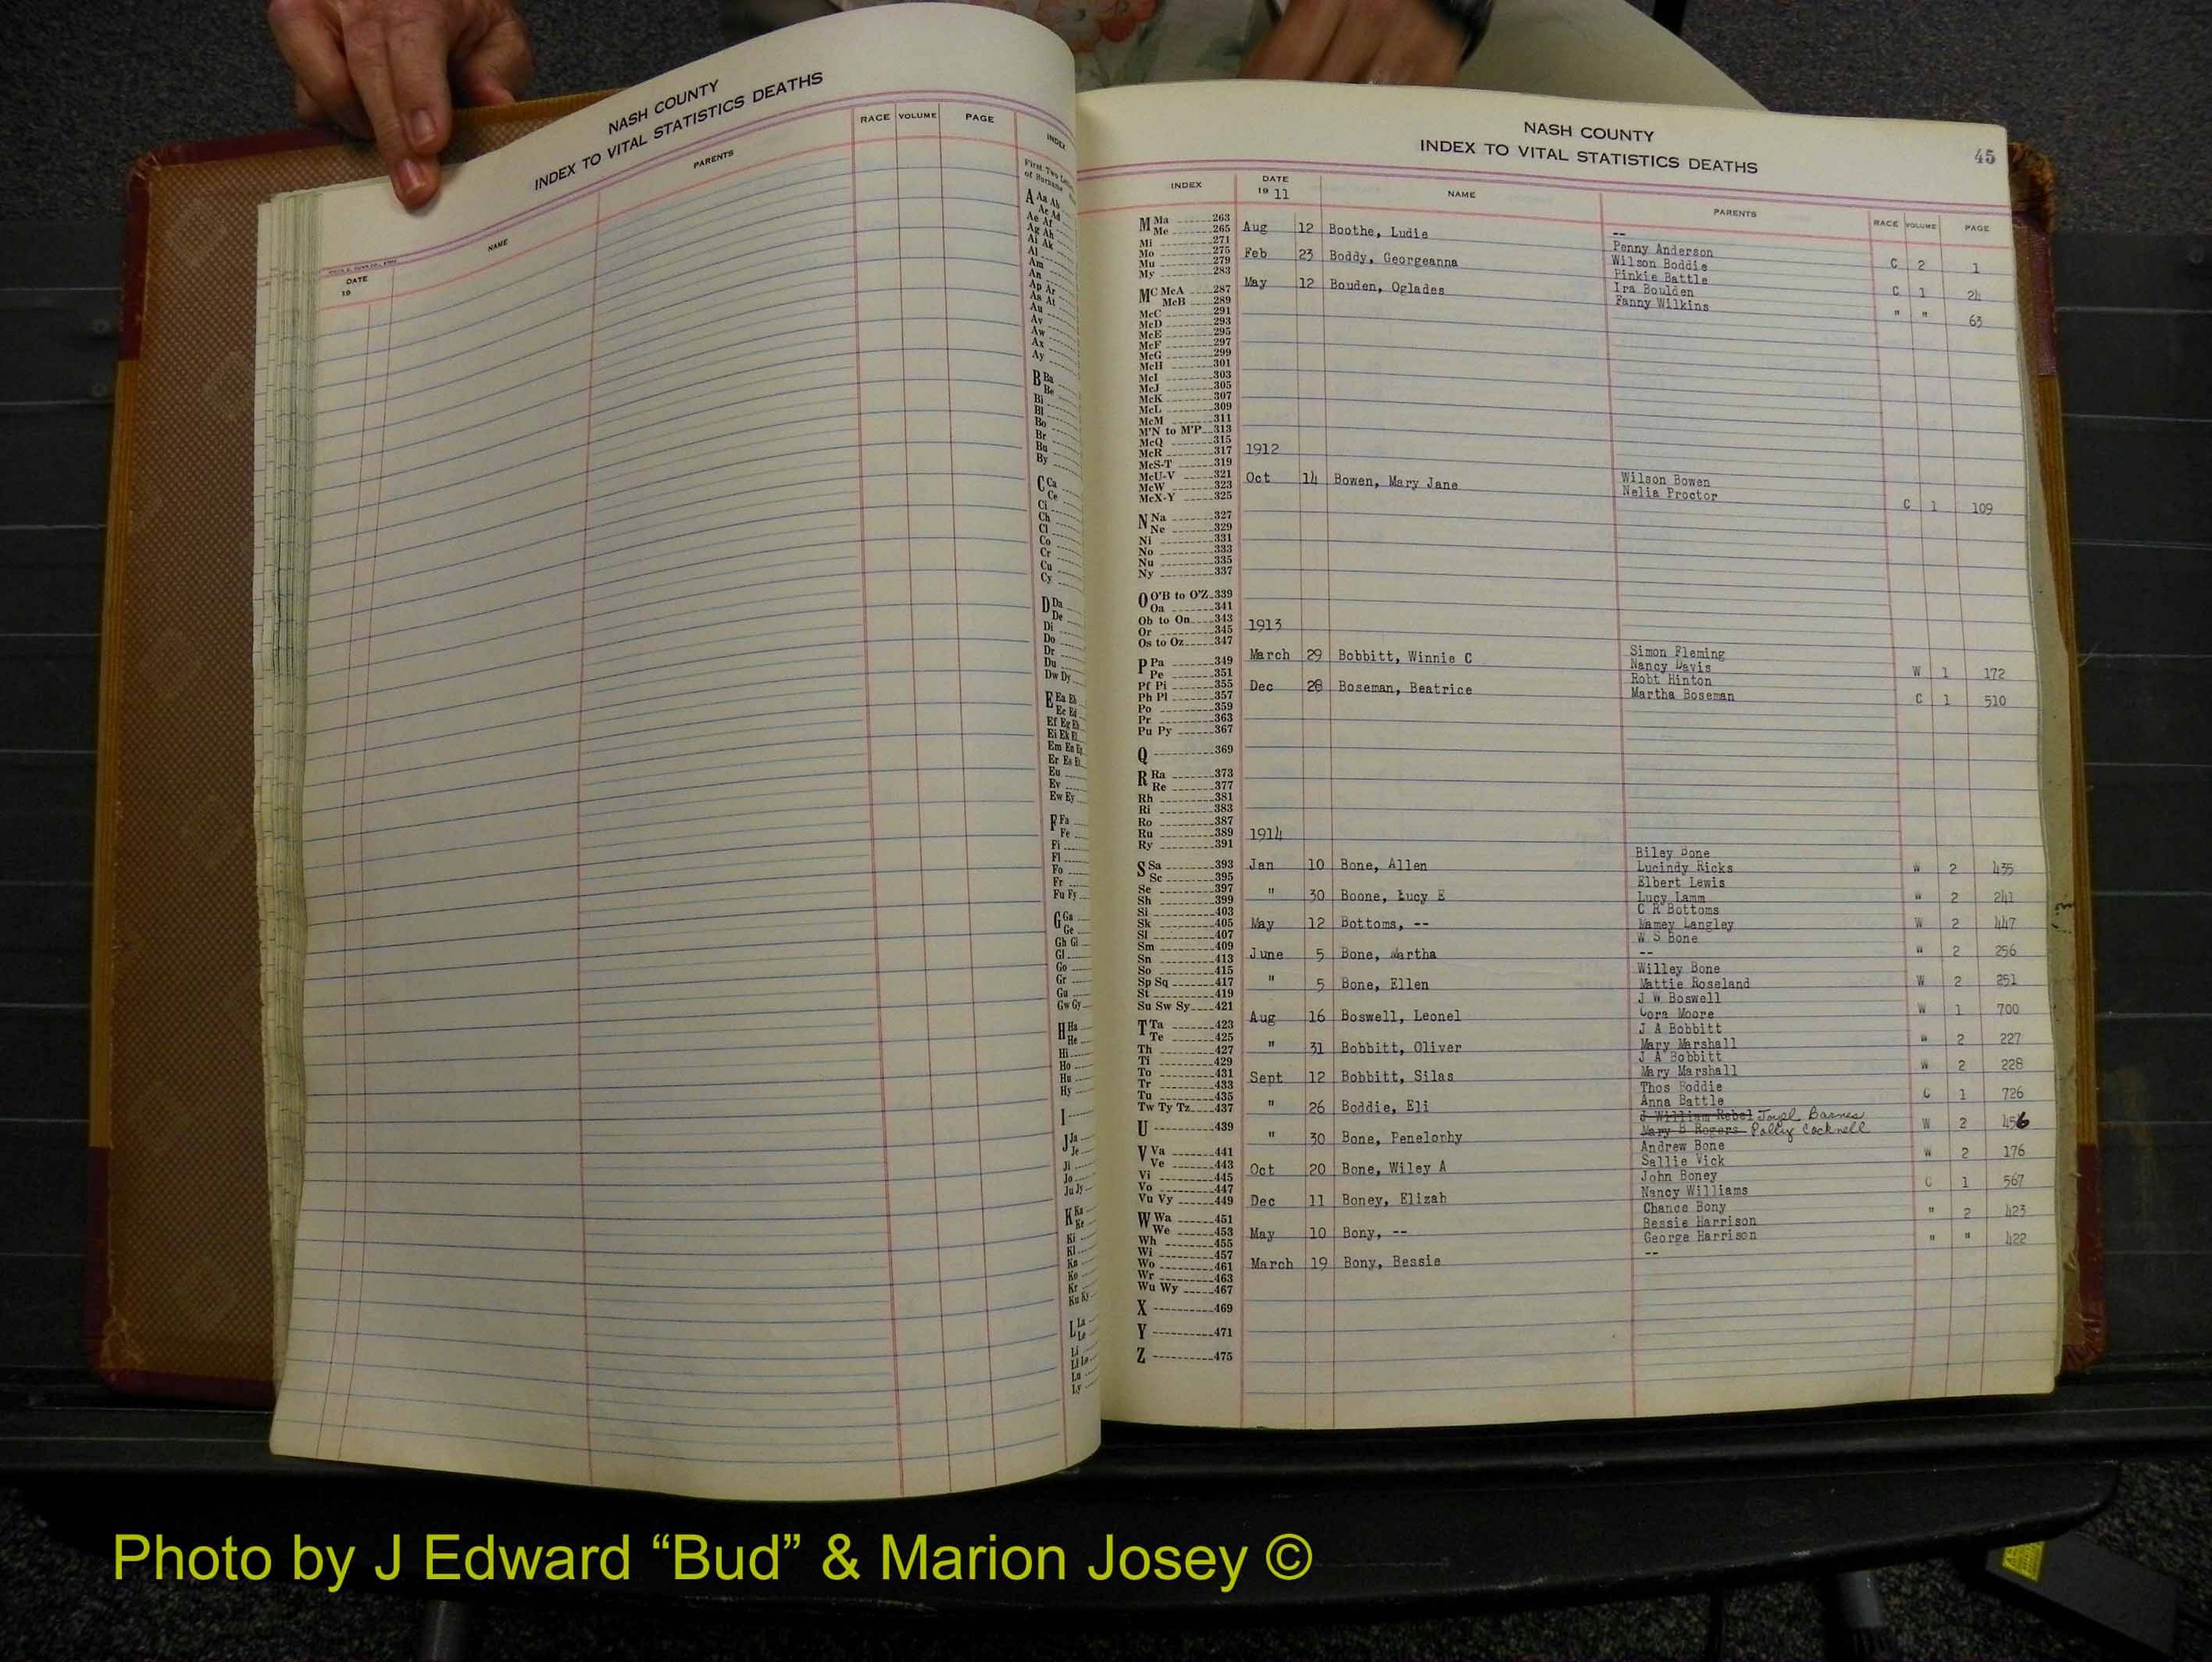 NASH COUNTY
INDEX TO VITAL STATISTICS DEATHS
DATE
19
NAME
PARENTS
RACE VOLUME PAGE
INDEX
First Two
of Surname
A Aa Ab
Ac Ad
Ae Af
Ag Ah
Ai Ak
Al
Am
An
Ap Ar
As At
Au
Av
Aw
Ax
Ay
B Ba
Be
Bi
Bl
Bo
Br
Bu
By
C Ca
Ce
Ci
Ch
Cl
Co
Cr
Cu
Cy
D Da
De
Di
Do
Dr
Du
Dw Dy
E Ea Eb
Ec Ed
Ef Eg Eh
Ei Ek El
Em En Ep
Er Es Et
Eu
Ev
Ew Ey
F Fa
Fe
Fi
Fl
Fo
Fr
Fu Fy
G Ga
Ge
Gh Gi
Gl
Go
Gr
Gu
Gw Gy
H Ha
He
Hi
Ho
Hu
Hy
I
J Ja
Je
Ji
Jo
Ju Jy
K Ka
Ke
Ki
Kl
Kn
Ko
Kr
Ku Ky
L La
Le
Li
Ll Lo
Lu
Ly
NASH COUNTY
INDEX TO VITAL STATISTICS DEATHS
45
INDEX DATE NAME PARENTS RACE VOLUME PAGE
19 11
M Ma 263
Me 265
Mi 271
Mo 275
Mu 279
My 283
MC McA 287
McB 289
McC 291
McD 293
McE 295
McF 297
McG 299
McH 301
McI 303
McJ 305
McK 307
McL 309
McM 311
M'N to M'P 313
McQ 315
McR 317
McS-T 319
McU-V 321
McW 323
McX-Y 325
N Na 327
Ne 329
Ni 331
No 333
Nu 335
Ny 337
O O'B to O'Z 339
Oa 341
Ob to On 343
Or 345
Os to Oz 347
P Pa 349
Pe 351
Pf Pi 355
Ph Pl 357
Po 359
Pr 363
Pu Py 367
Q 369
R Ra 373
Re 377
Rh 381
Ri 383
Ro 387
Ru 389
Ry 391
S Sa 393
Sc 395
Se 397
Sh 399
Si 403
Sk 405
Sl 407
Sm 409
Sn 413
So 415
Sp Sq 417
St 419
Su Sw Sy 421
T Ta 423
Te 425
Th 427
Ti 429
To 431
Tr 433
Tu 435
Tw Ty Tz 437
U 439
V Va 441
Ve 443
Vi 445
Vo 447
Vu Vy 449
W Wa 451
We 453
Wh 455
Wi 457
Wo 461
Wr 463
Wu Wy 467
X 469
Y 471
Z 475
Aug 12 Boothe, Ludie --
Penny Anderson C 2 1
Feb 23 Boddy, Georgeanna Wilson Boddie
Pinkie Battle C 1 24
May 12 Bouden, Oglades Ira Boulden
Fanny Wilkins " " 63
1912
Oct 14 Bowen, Mary Jane Wilson Bowen
Nelia Proctor C 1 109
1913
March 29 Bobbitt, Winnie C Simon Fleming
Nancy Davis W 1 172
Dec 28 Boseman, Beatrice Robt Hinton
Martha Boseman C 1 510
1914
Jan 10 Bone, Allen Biley Bone
Lucindy Ricks W 2 435
" 30 Boone, Lucy E Elbert Lewis
Lucy Lamm W 2 241
May 12 Bottoms, -- C R Bottoms
Mamey Langley W 2 447
June 5 Bone, Martha W S Bone
-- W 2 256
" 5 Bone, Ellen Willey Bone
Mattie Roseland W 2 251
Aug 16 Boswell, Leonel J W Boswell
Cora Moore W 1 700
" 31 Bobbitt, Oliver J A Bobbitt
Mary Marshall W 2 227
Sept 12 Bobbitt, Silas J A Bobbitt
Mary Marshall W 2 228
" 26 Boddie, Eli Thos Boddie
Anna Battle C 1 726
" 30 Bone, Penelophy J William Rebel Joyel Barnes
Mary B Rogers Polly Cocknell W 2 456
Oct 20 Bone, Wiley A Andrew Bone
Sallie Vick W 2 176
Dec 11 Boney, Elizah John Boney
Nancy Williams C 1 567
May 10 Bony, -- Chance Bony
Bessie Harrison " 2 423
March 19 Bony, Bessie George Harrison
-- " " 422
Photo by J Edward “Bud” & Marion Josey ©